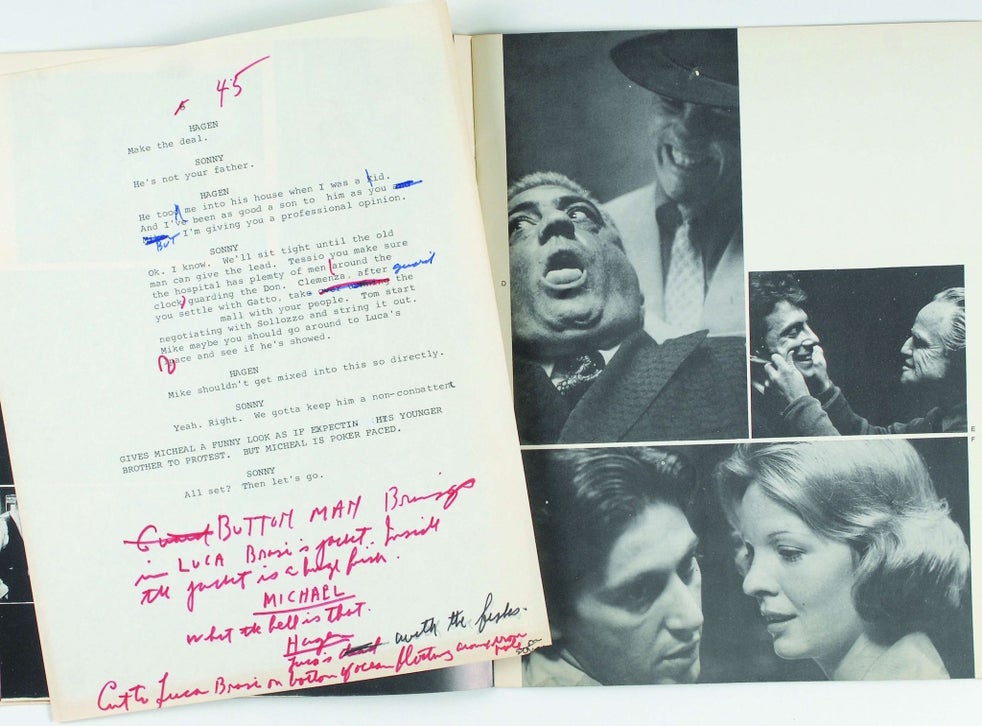 45
HAGEN
Make the deal.
SONNY
He's not your father.
HAGEN
He took me into his house when I was a kid.
And I've been as good a son to him as you
But I'm giving you a professional opinion.
SONNY
Ok. I know. We'll sit tight until the old
man can give the lead. Tessio you make sure
the hospital has plenty of men around the
clock guarding the Don. Clemenza, after guard
you settle with Gatto, take the
mall with your people. Tom start
negotiating with Sollozzo and string it out.
Mike maybe you should go around to Luca's
place and see if he's showed.
HAGEN
Mike shouldn't get mixed into this so directly.
SONNY
Yeah. Right. We gotta keep him a non-conbattent
GIVES MICHEAL A FUNNY LOOK AS IF EXPECTIN HIS YOUNGER
BROTHER TO PROTEST. BUT MICHEAL IS POKER FACED.
SONNY
All set? Then let's go.
BUTTON MAN Brings
in LUCA Brasi's jacket. Inside
the jacket is a huge fish.
MICHAEL
what the hell is that.
Hagen
Luca's with the fishes.
Cut to Luca Brasi on bottom of ocean floating around
D
E
F